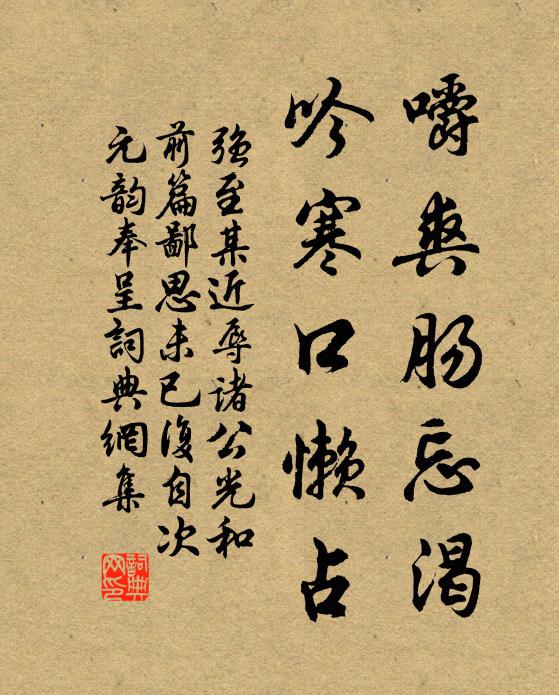 嚼爽肠忘渴
吟寒口懒占
强至某近辱诸公光和
前篇鄙思未已復自次
元韵奉呈詞典網集
詞典网印